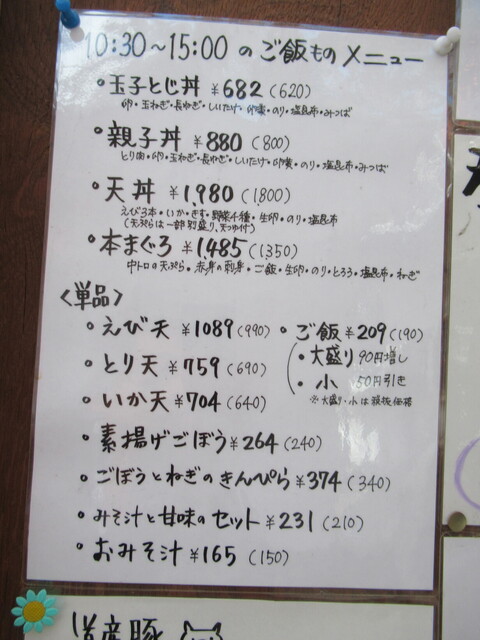 10:30～15:00 の ご飯もの メニュー
・玉子とじ丼 ¥682 (620)
卵・玉ねぎ・長ねぎ・しいたけ・卵黄・のり・塩昆布・みつば
・親子丼 ¥880 (800)
とり肉・卵・玉ねぎ・長ねぎ・しいたけ・卵黄・のり・塩昆布・みつば
・天丼 ¥1,980 (1800)
えび3本・いか・きす・野菜4種・生卵・のり・塩昆布
(天ぷらは一部別盛り、天つゆ付)
・本まぐろ ¥1,485 (1350)
中トロの天ぷら・赤身の刺身・ご飯・生卵・のり・とろろ・塩昆布・ねぎ
〈単品〉
・えび天 ¥1089 (990)
・とり天 ¥759 (690)
・いか天 ¥704 (640)
・ご飯 ¥209 (190)
・大盛り 90円増し
・小 50円引き
※大盛り・小は税抜価格
・素揚げごぼう ¥264 (240)
・ごぼうとねぎのきんぴら ¥374 (340)
・みそ汁と甘味のセット ¥231 (210)
・おみそ汁 ¥165 (150)
道産豚